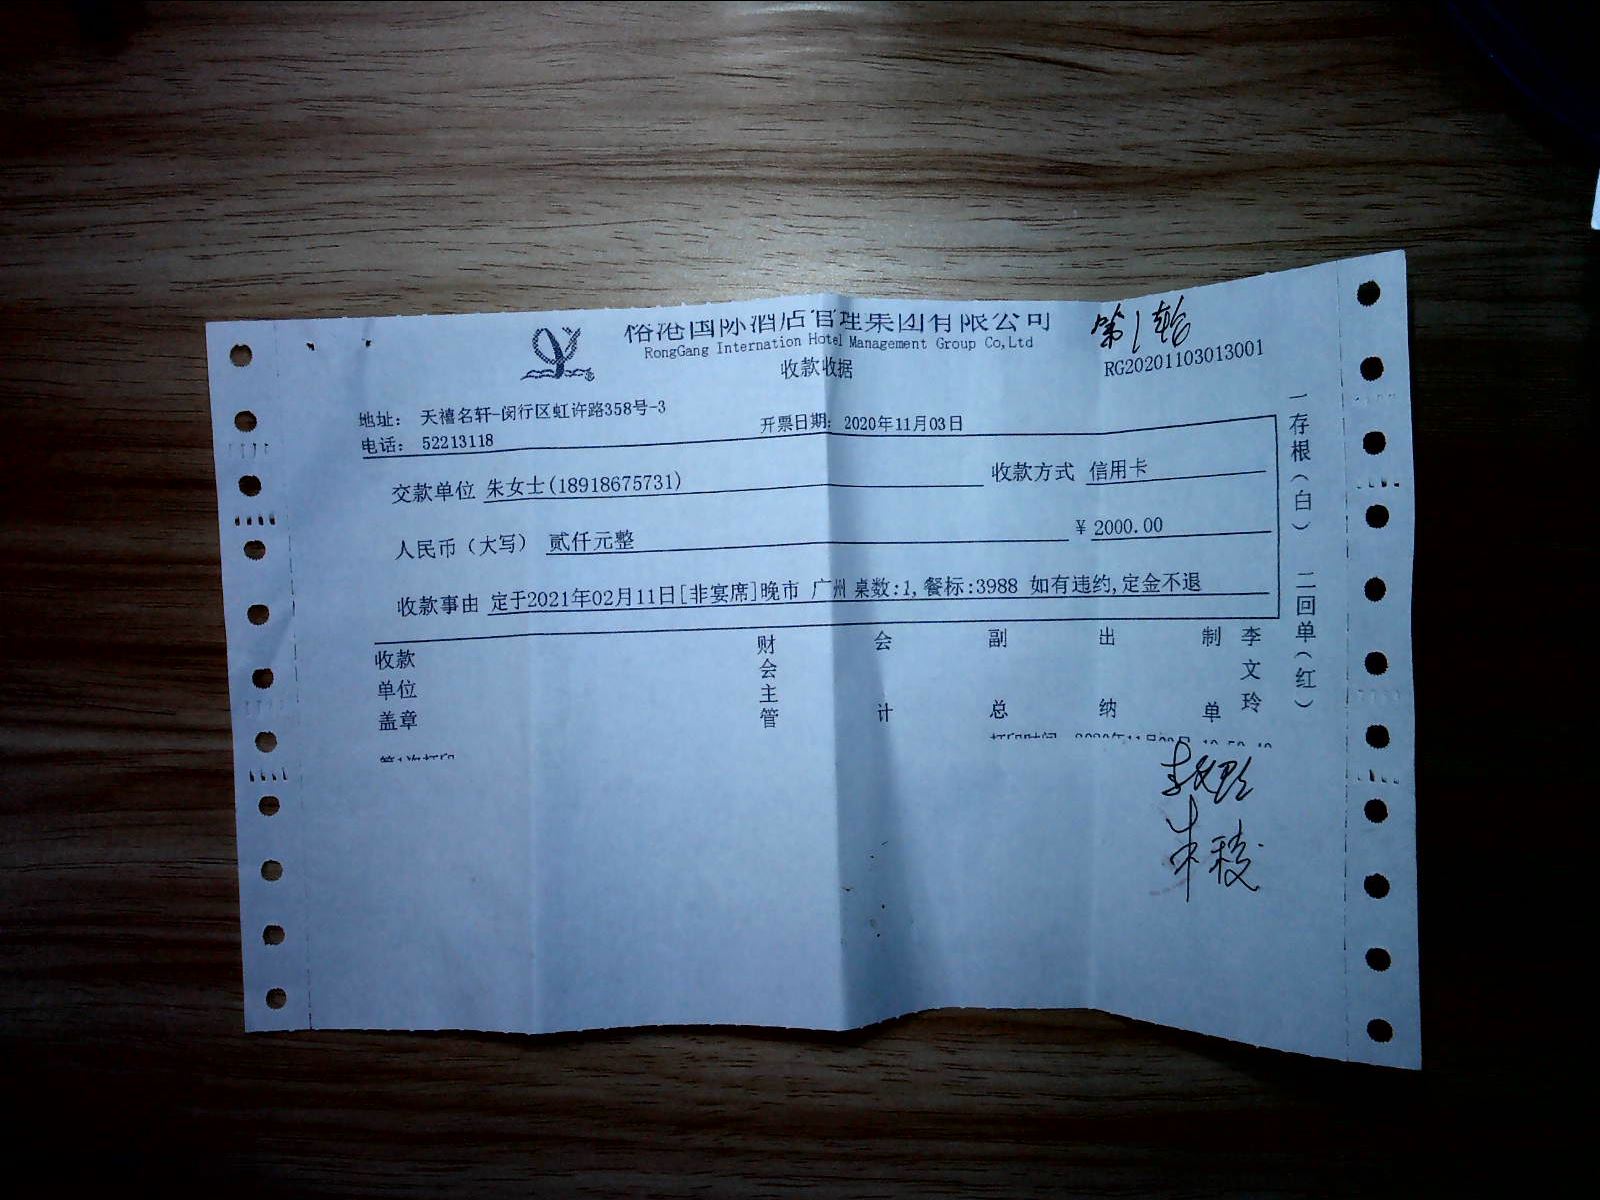 国际酒店管理集团有限公司
RongGang Internation Hotel Management Group Co,Ltd
收款收据
第1轮
RG20201103013001
地址: 天禧名轩-闵行区虹许路358号-3
电话: 52213118
开票日期: 2020年11月03日
交款单位 朱女士(18918675731) 收款方式 信用卡
人民币（大写） 贰仟元整 ¥ 2000.00
收款事由 定于2021年02月11日[非宴席]晚市 广州 桌数:1,餐标:3988 如有违约,定金不退
收款单位盖章 财会主管 会计 副总 出纳 制单 李文玲
一存根（白） 二回单（红）
第1次打印
李文玲